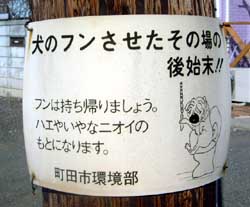 犬のフンさせたその場の
後始末!!
フンは持ち帰りましょう。
ハエやいやなニオイの
もとになります。
町田市環境部